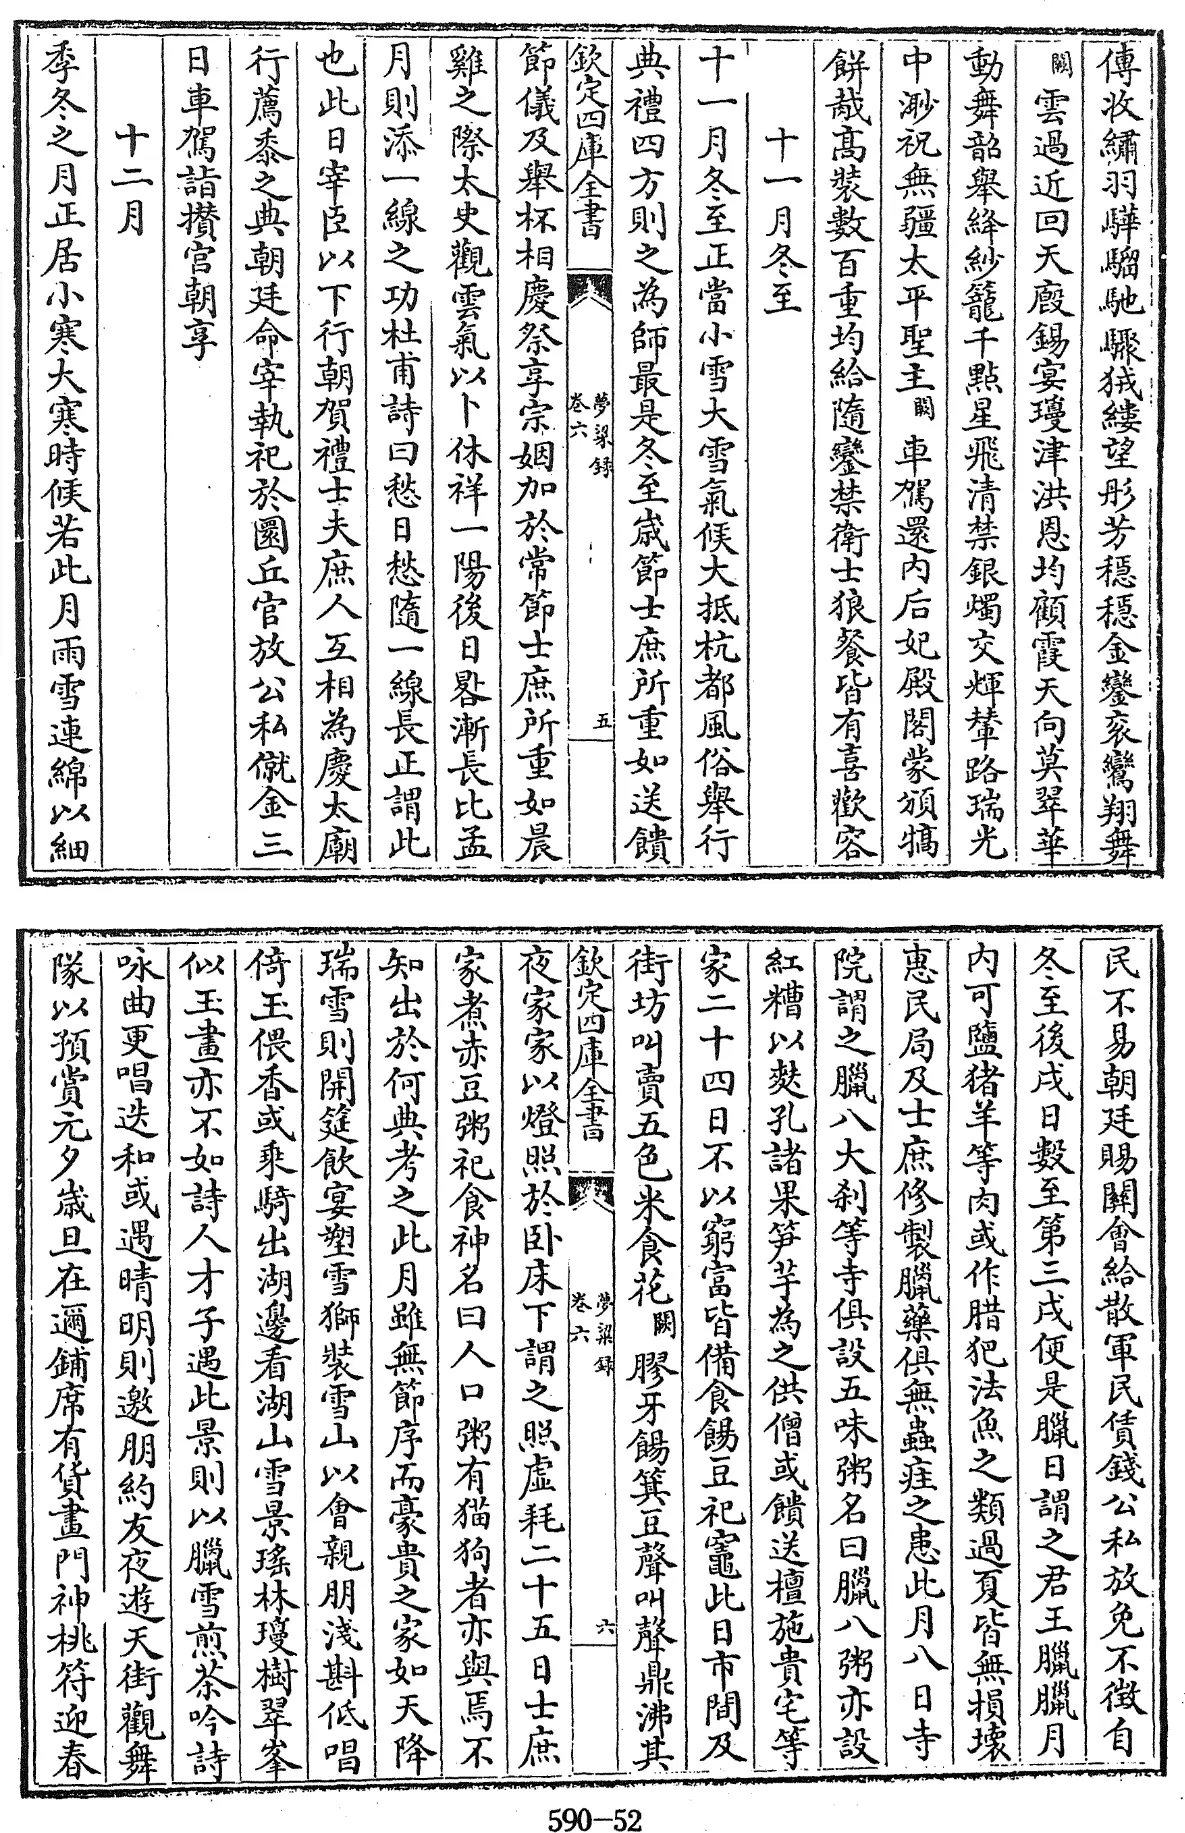 傳收繡羽驊騮馳驟狨縷望彤芳穩穩金鑾衮鸞翔舞
闕雲過近回天廏錫宴瓊津洪恩均顧霞天向莫翠華
動舞韶舉絳紗籠千點星飛清禁銀燭交輝輦路瑞光
中渺祝無疆太平聖主闕車駕還内后妃殿閣蒙頒犒
餅戠髙裝數百重均給隨鑾禁衛士狼餐皆有喜歡容
十一月冬至
十一月冬至正當小雪大雪氣候大抵杭都風俗舉行
典禮四方則之為師最是冬至嵗節士庶所重如送饋
欽定四庫全書
夢粱録
卷六
五
節儀及舉杯相慶祭享宗姻加於常節士庶所重如晨
雞之際太史觀雲氣以卜休祥一陽後日晷漸長比孟
月則添一線之功杜甫詩曰愁日愁隨一線長正謂此
也此日宰臣以下行朝賀禮士夫庶人互相為慶太廟
行薦黍之典朝廷命宰執祀於圜丘官放公私僦金三
日車駕詣攢宫朝享
十二月
季冬之月正居小寒大寒時候若此月雨雪連綿以細
民不易朝廷賜關會給散軍民賃錢公私放免不徴自
冬至後戌日數至第三戌便是臘日謂之君王臘臘月
内可鹽猪羊等肉或作腊犯法魚之類過夏皆無損壊
惠民局及士庶修製臘藥俱無蟲疰之患此月八日寺
院謂之臘八大刹等寺俱設五味粥名曰臘八粥亦設
紅糟以麩孔諸果笋芋為之供僧或饋送檀施貴宅等
家二十四日不以窮富皆備食餳豆祀竈此日市間及
街坊叫賣五色米食花闕膠牙餳箕豆聲叫聲鼎沸其
欽定四庫全書
夢粱録
卷六
六
夜家家以燈照於卧床下謂之照虛耗二十五日士庶
家煮赤豆粥祀食神名曰人口粥有猫狗者亦與焉不
知出於何典考之此月雖無節序而豪貴之家如天降
瑞雪則開筵飲宴塑雪獅裝雪山以會親朋淺斟低唱
倚玉偎香或乘騎出湖邊看湖山雪景瑤林瓊樹翠峯
似玉畫亦不如詩人才子遇此景則以臘雪煎茶吟詩
咏曲更唱迭和或遇晴明則邀朋約友夜遊天街觀舞
隊以預賞元夕嵗旦在邇鋪席有貨畫門神桃符迎春
590—52